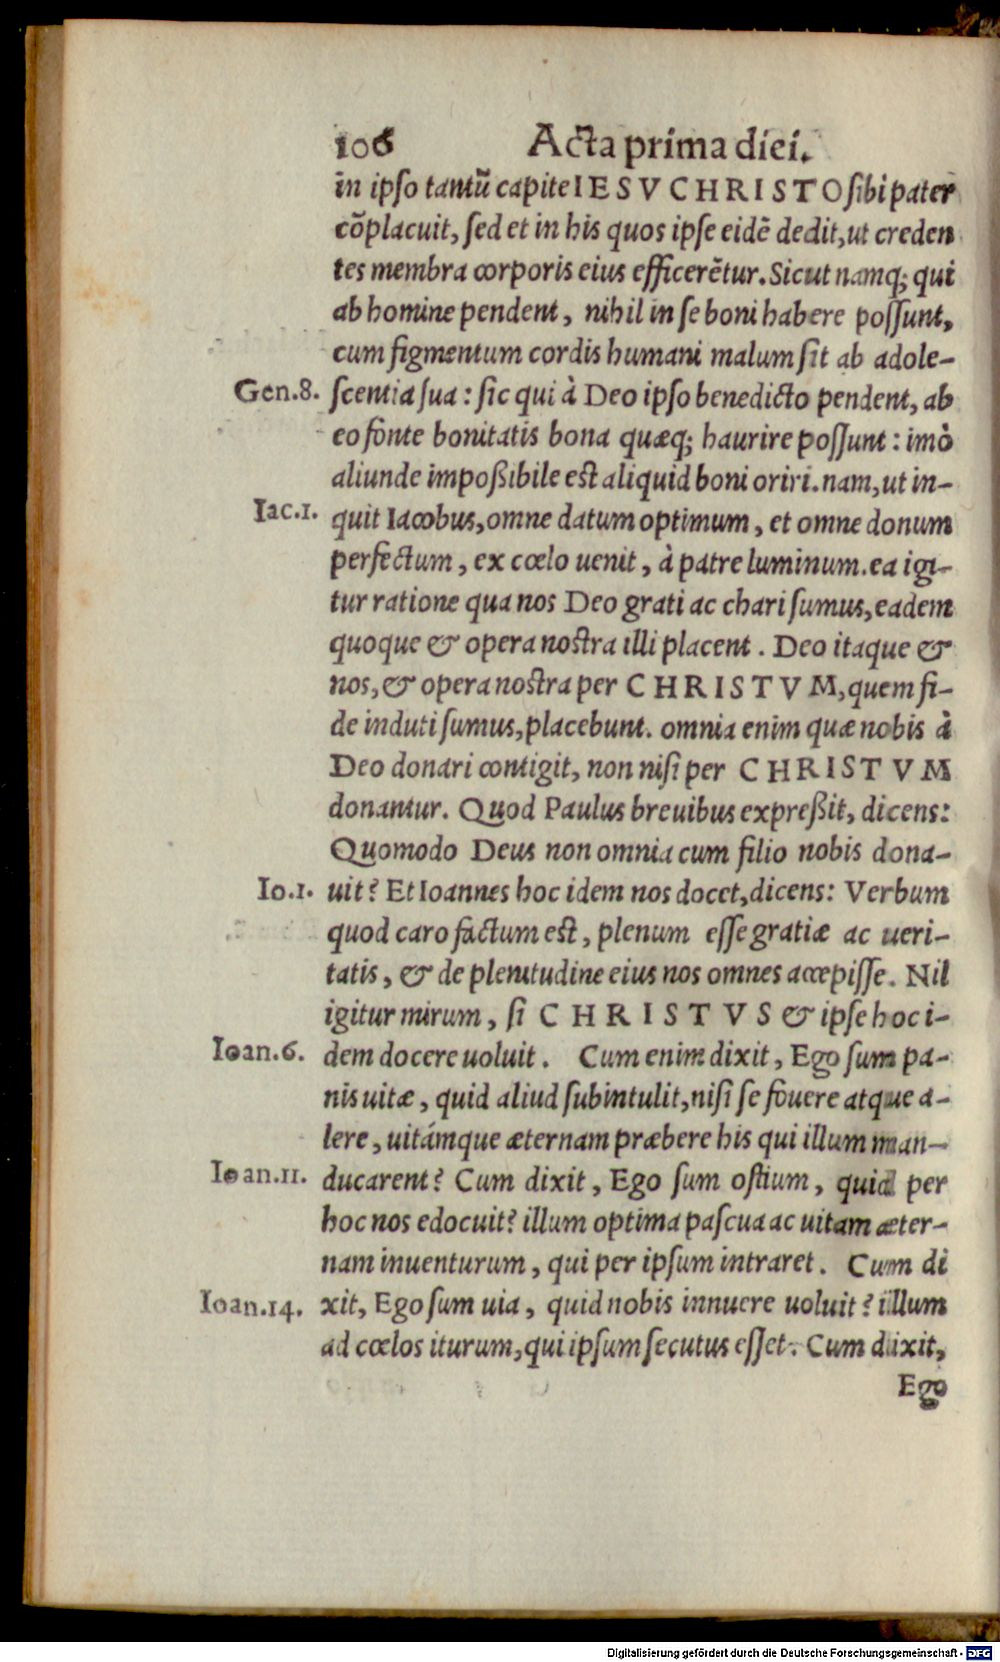 106 Acta prima diei.
in ipso tantū capite IESV CHRISTO sibi pater
cōplacuit, sed et in his quos ipse eidē dedit, ut creden
tes membra corporis eius efficerētur. Sicut namq; qui
ab homine pendent, nihil in se boni habere possunt,
cum figmentum cordis humani malum sit ab adole-
Gen.8. scentia sua: sic qui à Deo ipso benedicto pendent, ab
eo fonte bonitatis bona quæq; haurire possunt: imò
aliunde impoßibile est aliquid boni oriri. nam, ut in-
Iac.1. quit Iacobus, omne datum optimum, et omne donum
perfectum, ex cœlo uenit, à patre luminum. ea igi-
tur ratione qua nos Deo grati ac chari sumus, eadem
quoque & opera nostra illi placent. Deo itaque &
nos, & opera nostra per CHRISTVM, quem fi-
de induti sumus, placebunt. omnia enim quæ nobis à
Deo donari contigit, non nisi per CHRISTVM
donantur. Quod Paulus breuibus expreßit, dicens:
Quomodo Deus non omnia cum filio nobis dona-
Io.1. uit? Et Ioannes hoc idem nos docet, dicens: Verbum
quod caro factum est, plenum esse gratiæ ac ueri-
tatis, & de plenitudine eius nos omnes accepisse. Nil
igitur mirum, si CHRISTVS & ipse hoc i-
Ioan.6. dem docere uoluit. Cum enim dixit, Ego sum pa-
nis uitæ, quid aliud subintulit, nisi se fouere atque a-
lere, uitámque æternam præbere his qui illum man-
Ioan.11. ducarent? Cum dixit, Ego sum ostium, quid per
hoc nos edocuit? illum optima pascua ac uitam æter-
nam inuenturum, qui per ipsum intraret. Cum di
Ioan.14. xit, Ego sum uia, quid nobis innuere uoluit? illum
ad cœlos iturum, qui ipsum secutus esset. Cum dixit,
Ego
Digitalisierung gefördert durch die Deutsche Forschungsgemeinschaft - DFG